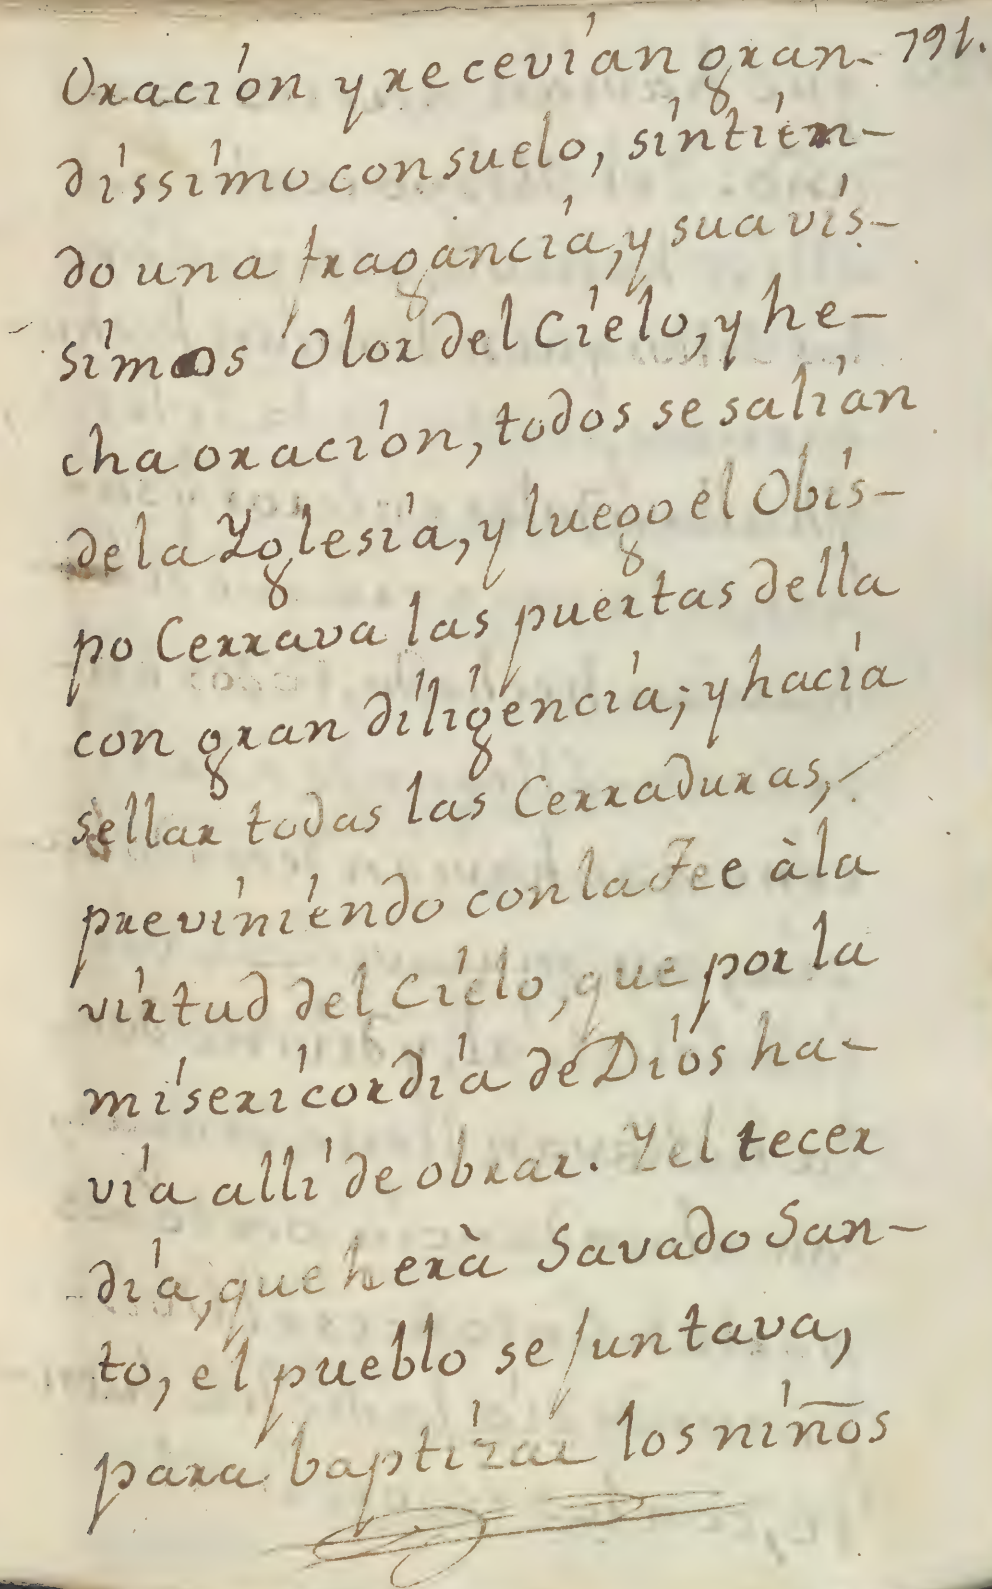 Oración y recevían gran- 791.
díssímo consuelo, síntíen-
do una fragancía, y suavís-
símos Olor del Cíelo, y he-
cha oración, todos se salían
de la Yglesía, y luego el Obís-
po Cerrava las puertas della
con gran dílígencía; y hacía
sellar todas las Cerraduras,
previníendo con la Fee à la
vírtud del Cíelo, que por la
mísericordía de Díos ha-
vía allí de obrar. Y el tecer
día, que herà Savado San-
to, el pueblo se juntava,
para baptízar los níños